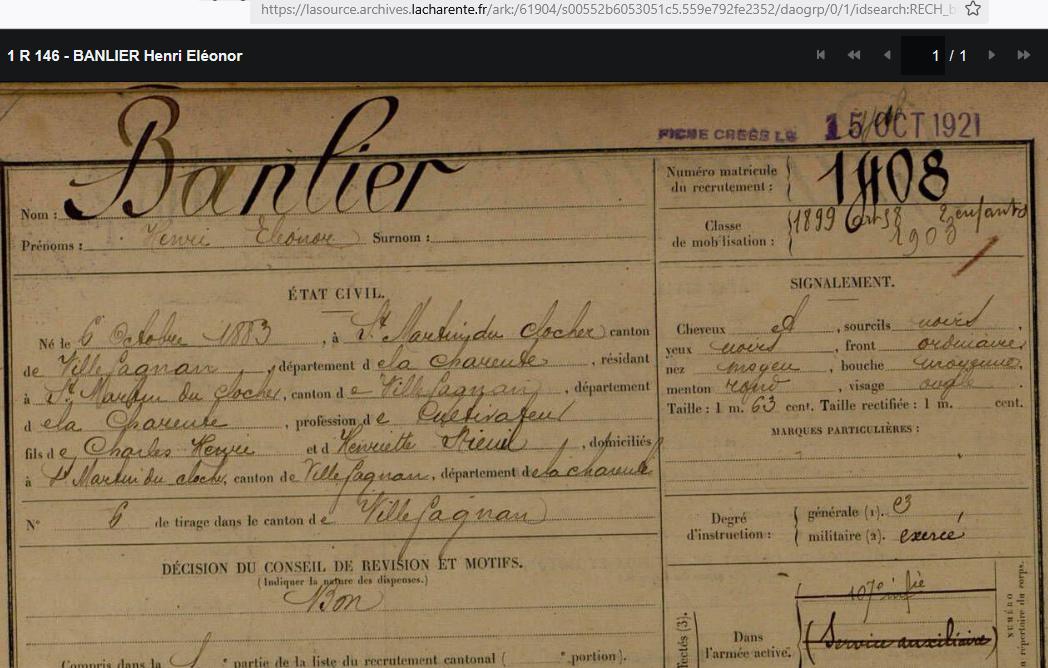 https://lasource.archives.lacharente.fr/ark:/61904/s00552b6053051c5.559e792fe2352/daogrp/0/1/idsearch:RECH_
1 R 146 - BANLIER Henri Eléonor
1 / 1
FICHE CREEE LE 15 OCT 1921
Banlier
Nom :
Prénoms : Henri Eléonor Surnom :
Numéro matricule du recrutement : 1408
Classe de mobilisation : 1899 art 58 2 enfants
1903
ÉTAT CIVIL.
Né le 6 Octobre 1883, à St Martin du clocher canton
de Villefagnan, département de la Charente, résidant
à St Martin du clocher, canton de Villefagnan, département
de la Charente, profession de Cultivateur
fils de Charles Henri et d Henriette, domiciliés
à St Martin du clocher, canton de Villefagnan, département de la charente
N° 6 de tirage dans le canton de Villefagnan
DÉCISION DU CONSEIL DE REVISION ET MOTIFS.
(Indiquer la nature des dispenses.)
Bon
Compris dans la partie de la liste du recrutement cantonal ( portion).
SIGNALEMENT.
Cheveux et, sourcils noirs,
yeux noirs, front ordinaire
nez moyen, bouche moyenne,
menton rond, visage ovale.
Taille : 1 m. 63 cent. Taille rectifiée : 1 m. cent.
MARQUES PARTICULIÈRES :
Degré d'instruction :
générale (1). 3
militaire (2). exercé
107e infie
Dans l'armée active.
(Service auxiliaire)
NUMÉRO
répertoire du corps.